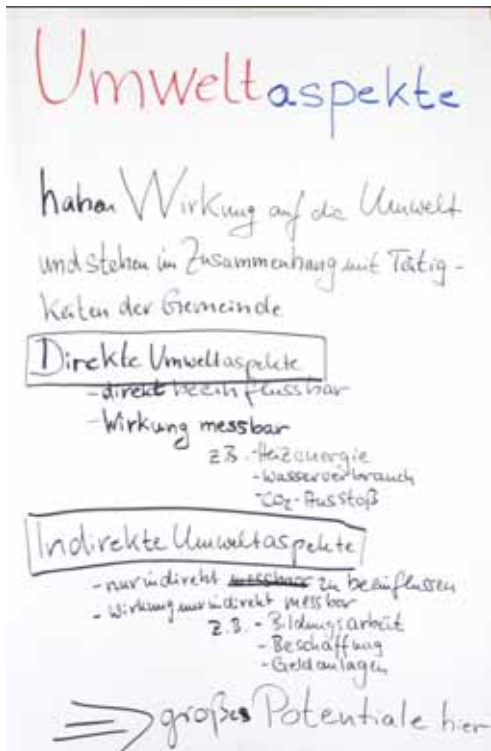 Umweltaspekte
haben Wirkung auf die Umwelt
und stehen im Zusammenhang mit Tätig-
keiten der Gemeinde
Direkte Umweltaspekte
- direkt beeinflussbar
- Wirkung messbar
z.B. - Heizenergie
- Wasserverbrauch
- CO₂-Ausstoß
Indirekte Umweltaspekte
- nur indirekt messbar zu beeinflussen
- Wirkung nur indirekt messbar
z.B. - Bildungsarbeit
- Beschaffung
- Geldanlagen
⇒ großes Potentiale hier